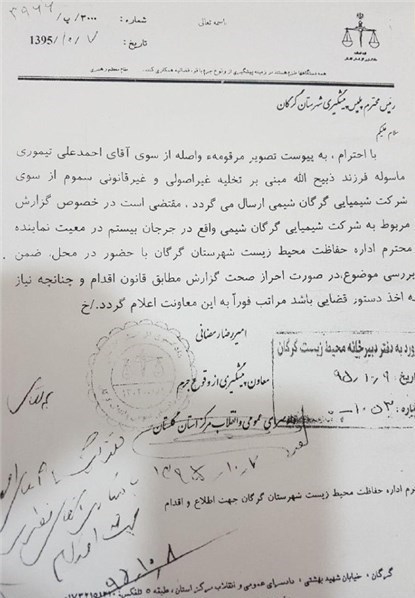 باسمه تعالی
شماره: ۳۹۶۶/پ/۳۰۰۰
تاریخ: 1395/۱۰/۷
رئیس محترم پلیس پیشگیری شهرستان گرگان
سلام علیکم
با احترام ، به پیوست تصویر مرقومه واصله از سوی آقای احمدعلی تیموری
ماسوله فرزند ذبیح الله مبنی بر تخلیه غیراصولی و غیرقانونی سموم از سوی
شرکت شیمیایی گرگان شیمی ارسال می گردد . مقتضی است در خصوص گزارش
مربوط به شرکت شیمیایی گرگان شیمی واقع در جرجان بیستم در معیت نماینده
محترم اداره حفاظت محیط زیست شهرستان گرگان با حضور در محل، ضمن
بررسی موضوع،در صورت احراز صحت گزارش مطابق قانون اقدام و چنانچه نیاز
به اخذ دستور قضایی باشد مراتب فوراً به این معاونت اعلام گردد./خ
امیررضا رمضانی
معاون پیشگیری از وقوع جرم
دادسرای عمومی و انقلاب مرکز استان گلستان
۱۳۹۵/۱۰/۷
ورود به دفتر دبیرخانه محیط زیست گرگان
تاریخ: ۹۵/۱۰/۹
شماره: ۱۰۵۳
محترم اداره حفاظت محیط زیست شهرستان گرگان جهت اطلاع و اقدام
جهت اقدام
۹۵/۱۰/۸
گرگان ، خیابان شهید بهشتی ، دادسرای عمومی و انقلاب مرکز استان، طبقه ۵